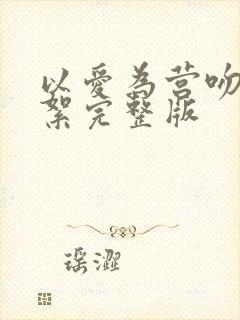 以爱为营吻
絮完整版
瑶澀